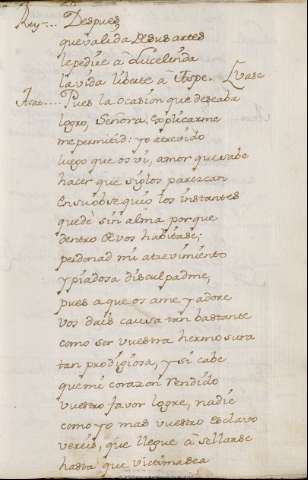 Rey-... Despues
que valida de sus artes
le pedire a Lucelinda
la vida liberte a Tospe. Vase
Pues la ocasion que deseaba
logro, Señora, explicarme
me permitid: yo atrevido
luego que os vi, amor que sabe
hacer que siglos parezcan
en su obsequio los instantes
quedè sin alma porque
dentro de vos habitase;
perdonad mi atrevimiento
y piadosa disculpadme,
pues a que os ame y adore
vos dais causa tan bastante
como ser vuestra hermosura
tan prodigiosa, y si cabe
que mi corazon rendido
vuestro favor logre, nadie
como yo mas vuestro esclavo
vereis, que llegue a sellarse
hasta que victima sea